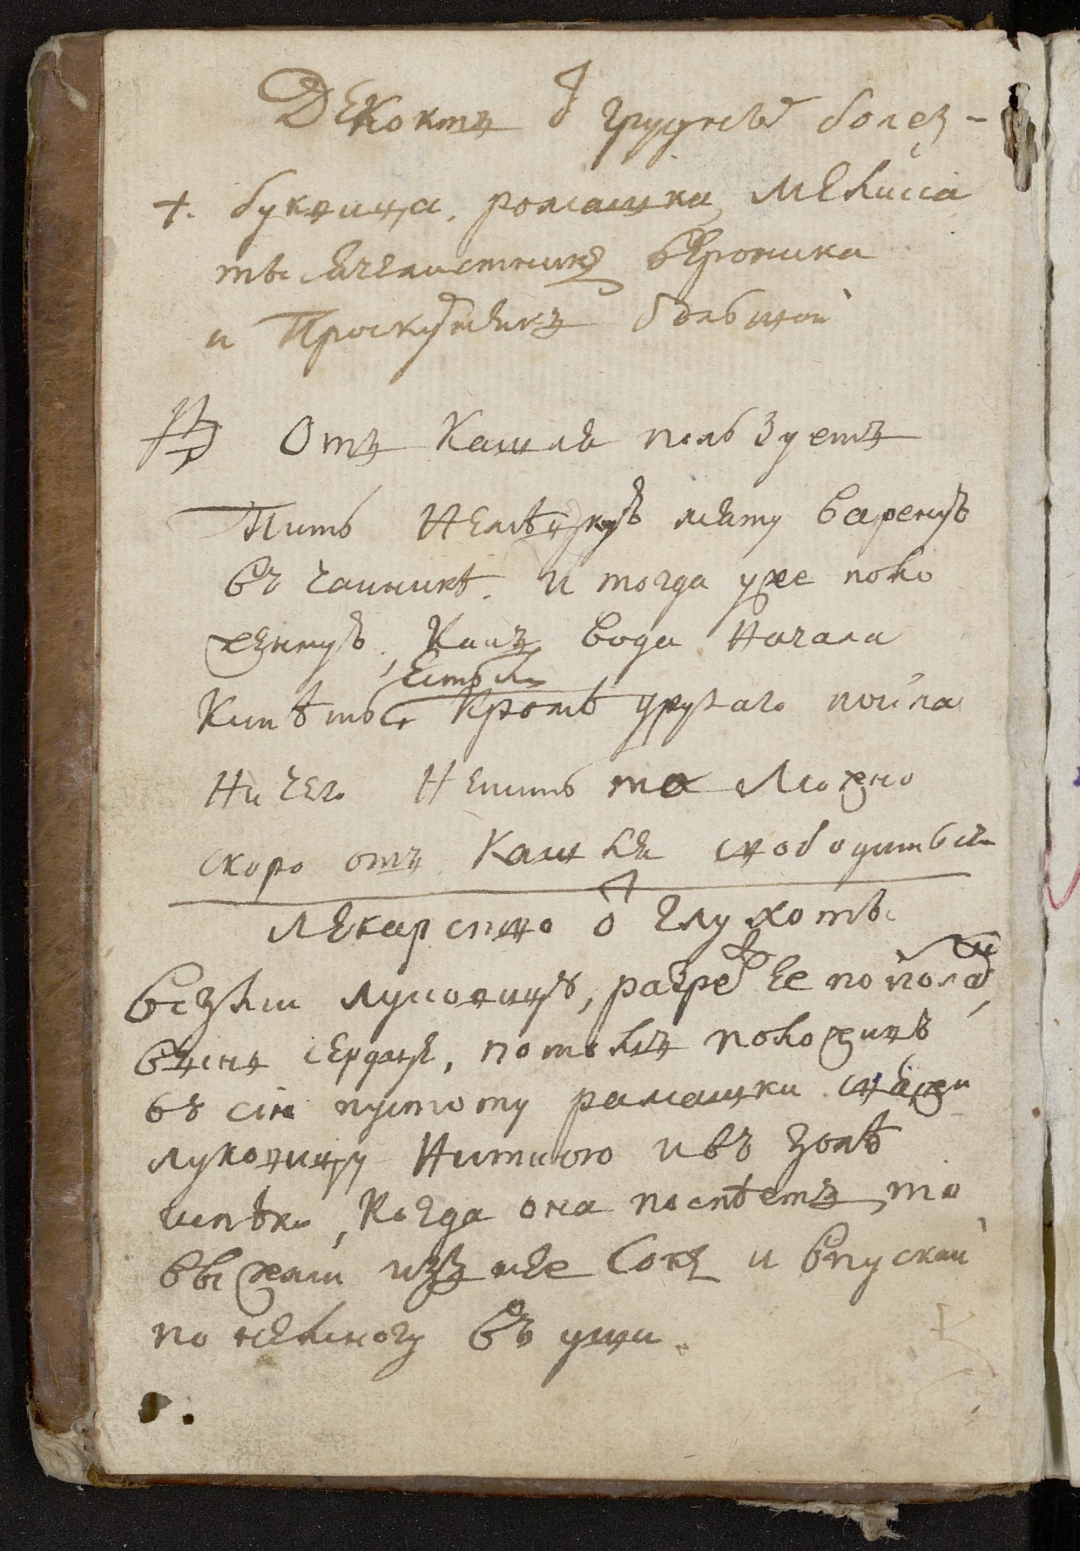 Декоктъ ѿ грудной болез-
+. буквица, ромашка, мелисса
тысячелистникъ вероника
и Проскурнякъ большой
Отъ Кашля пользуетъ
Пить Немецкую мяту вареную
въ чаиникѣ. и тогда уже поло
женную, Какъ вода Начала
Кипѣть. естьли Кромѣ другаго поила
Ничего Непить то Можно
скоро отъ Кашля свободиться
Лекарство ѿ глухоты
возми луковицу, разреж ее пополам
вынь сердце, потомъ положить
въ сию пустоту рамашки свяжи
луковицу Ниткою и въ золѣ
испѣки, Когда она поспѣетъ, то
выжми изъ нее Сокъ и впускай
понемногу въ уши.